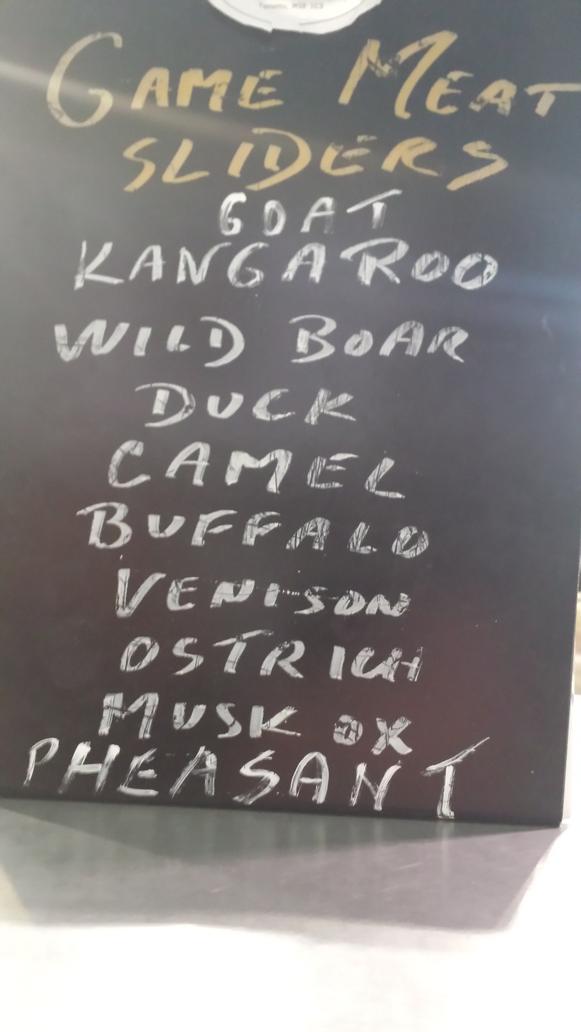 Toronto, M5E 1C3
GAME MEAT
SLIDERS
GOAT
KANGAROO
WILD BOAR
DUCK
CAMEL
BUFFALO
VENISON
OSTRICH
MUSK OX
PHEASANT